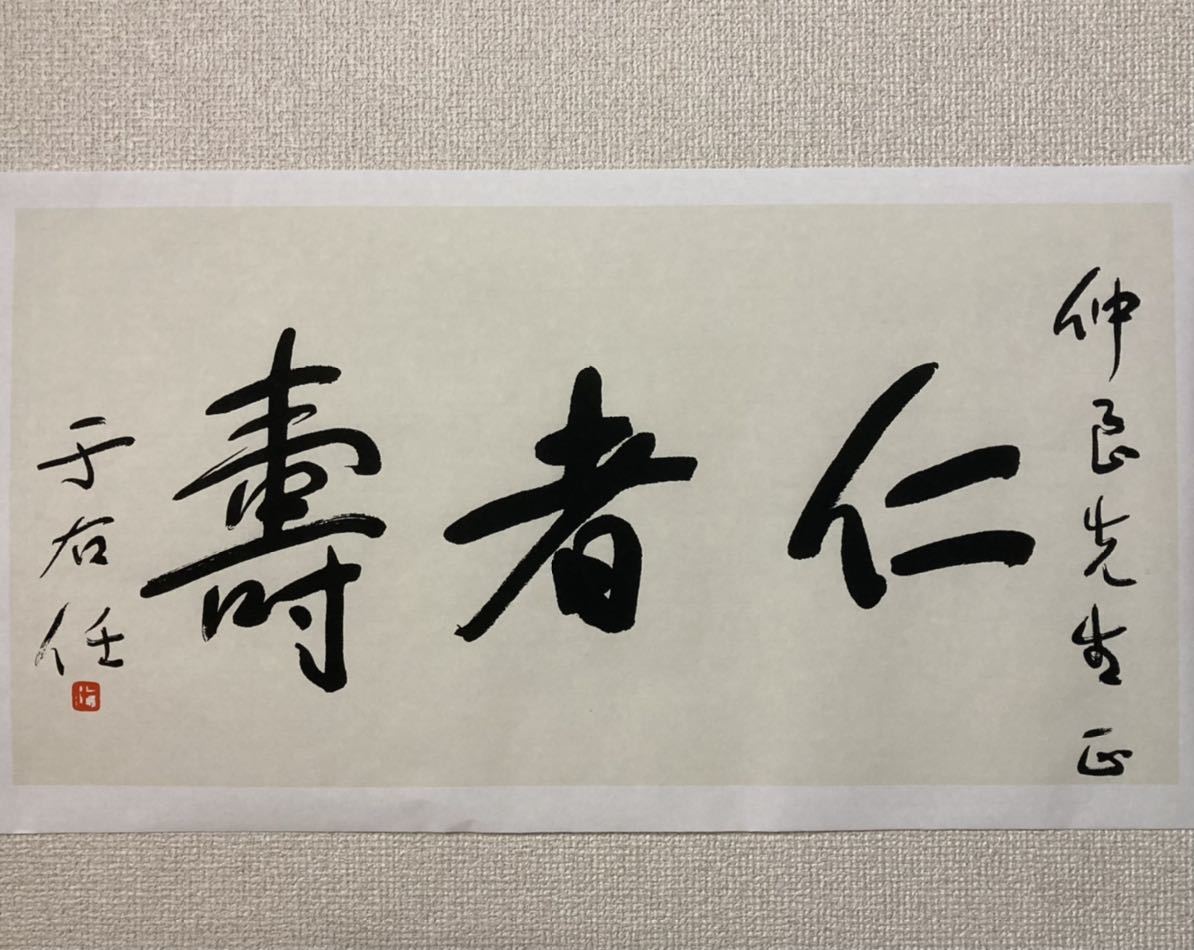 仲良先生正
仁者壽
于右任